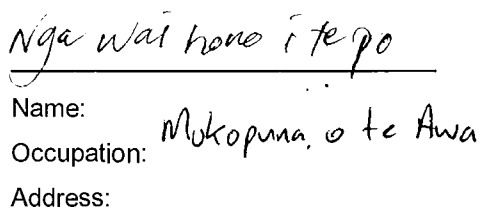 Nga wai hono i te po
Name:
Occupation: Mokopuna o te Awa
Address: